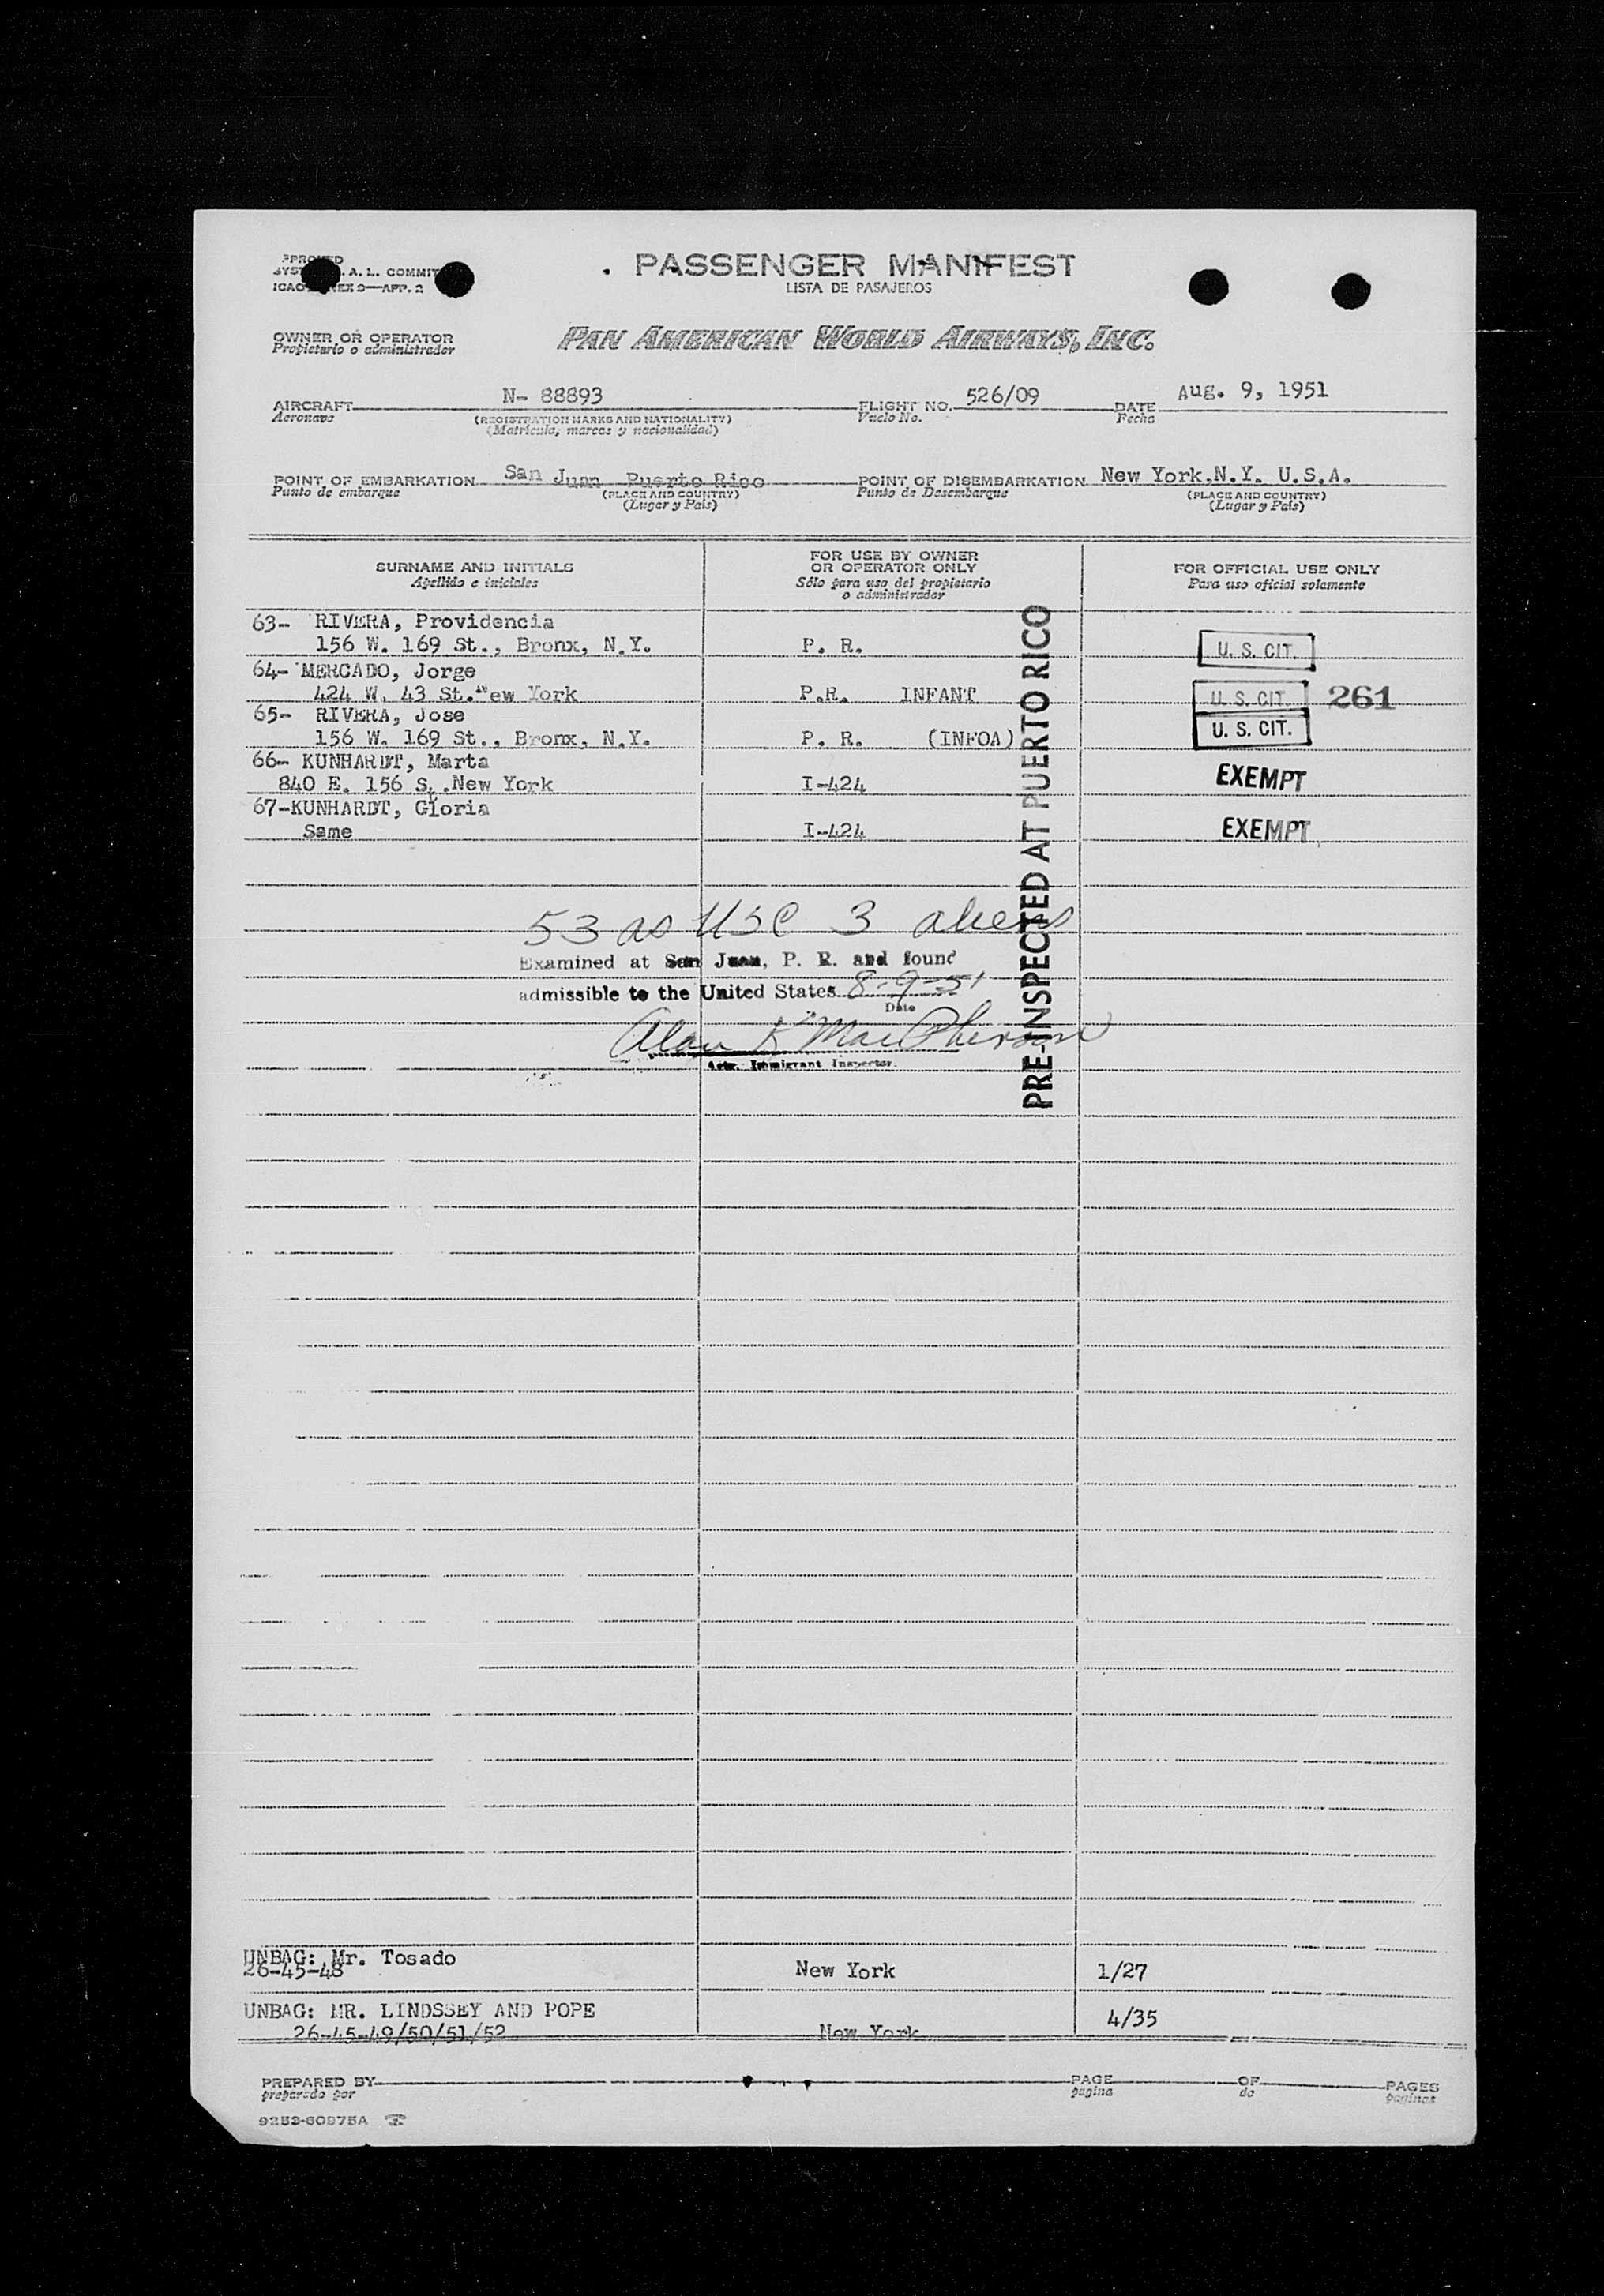 PASSENGER MANIFEST
LISTA DE PASAJEROS
A. L. COMMIT
APP. 2
OWNER OR OPERATOR
Propietario o administrador
PAN AMERICAN WORLD AIRWAYS, INC.
AIRCRAFT N- 88893 FLIGHT NO. 526/09 DATE Aug. 9, 1951
Aeronave (REGISTRATION MARKS AND NATIONALITY) Vuelo No. Fecha
(Matrícula, marcas y nacionalidad)
POINT OF EMBARKATION San Juan Puerto Rico POINT OF DISEMBARKATION New York.N.Y. U.S.A.
Punto de embarque (PLACE AND COUNTRY) Punto de Desembarque (PLACE AND COUNTRY)
(Lugar y País) (Lugar y País)
SURNAME AND INITIALS
Apellido e iniciales
FOR USE BY OWNER
OR OPERATOR ONLY
Sólo para uso del propietario
o administrador
FOR OFFICIAL USE ONLY
Para uso oficial solamente
63- RIVERA, Providencia
156 W. 169 St., Bronx, N.Y. P. R. U. S. CIT.
64- MERCADO, Jorge
424 W. 43 St. New York P.R. INFANT U. S. CIT. 261
65- RIVERA, Jose
156 W. 169 St., Bronx, N.Y. P. R. (INFOA) U. S. CIT.
66- KUNHARDT, Marta
840 E. 156 S, .New York I-424 EXEMPT
67-KUNHARDT, Gloria
Same I-424 EXEMPT
PRE-INSPECTED AT PUERTO RICO
53 as USC 3 aliens
Examined at San Juan, P. R. and found
admissible to the United States 8-9-51
Date
Alan K MacPherson
Immigrant Inspector.
UNBAG: Mr. Tosado
26-45-48 New York 1/27
UNBAG: MR. LINDSSEY AND POPE 4/35
26-45-49/50/51/52 New York
PREPARED BY PAGE OF PAGES
preparado por pagina de paginas
9253-60975A